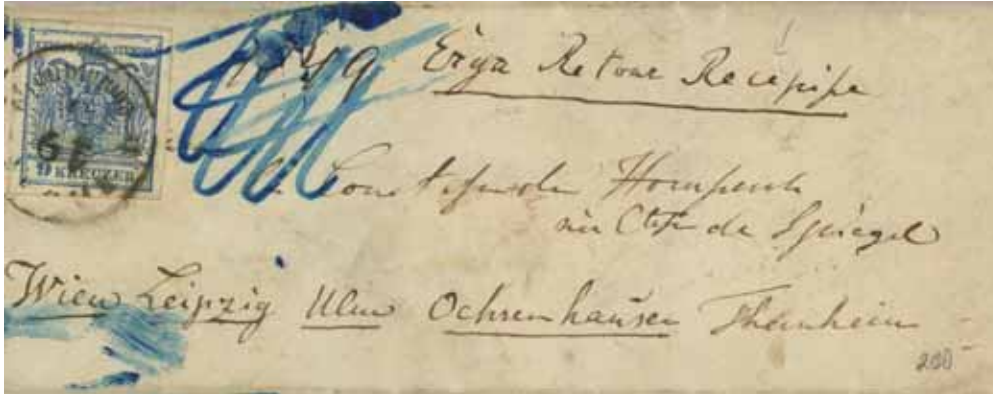 9 KREUZER
Erga Retour Recepisse
Comtesse de Hompesch
née Ctsse de Spiegel
Wien Leipzig Ulm Ochsenhausen Thanheim
200